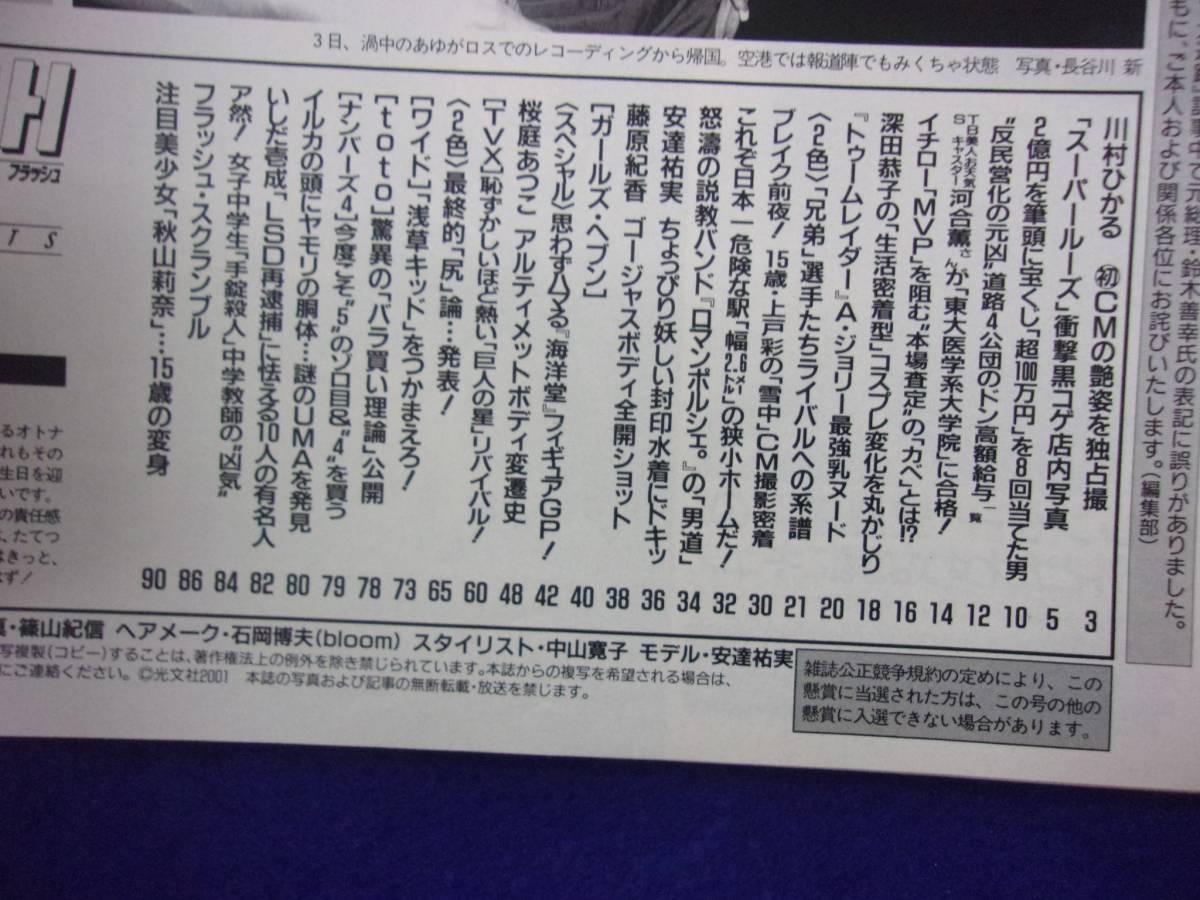 3日、渦中のあゆがロスでのレコーディングから帰国。空港では報道陣でもみくちゃ状態　写真・長谷川 新
元総理・鈴木善幸氏の表記に誤りがありました。
もに、ご本人および関係各位にお詫びいたします。(編集部)
フラッシュ
T S
川村ひかる ㊞CMの艶姿を独占撮 3
「スーパールーズ」衝撃黒コゲ店内写真 5
2億円を筆頭に宝くじ「超100万円」を8回当てた男 10
“反民営化の元凶”道路4公団のドン高額給与一覧 12
TBS美人お天気キャスター河合薫さんが「東大医学系大学院」に合格! 14
イチロー「MVP」を阻む“本場査定”の「カベ」とは!? 16
深田恭子の「生活密着型」コスプレ変化を丸かじり 18
『トゥームレイダー』A・ジョリー最強乳ヌード 20
〈2色〉「兄弟」選手たちライバルへの系譜 21
ブレイク前夜! 15歳・上戸彩の「雪中」CM撮影密着 30
これぞ日本一危険な駅「幅2.6メートル」の狭小ホームだ! 32
怒濤の説教バンド『ロマンポルシェ。』の「男道」 34
安達祐実 ちょっぴり妖しい封印水着にドキッ 36
藤原紀香 ゴージャスボディ全開ショット 38
[ガールズ・ヘブン] 40
〈スペシャル〉思わずハマる『海洋堂』フィギュアGP! 42
桜庭あつこ アルティメットボディ変遷史 48
[TVX]恥ずかしいほど熱い「巨人の星」リバイバル! 60
〈2色〉最終的「尻」論…発表! 65
[ワイド]「浅草キッド」をつかまえろ! 73
[toto]驚異の「バラ買い理論」公開 78
[ナンバーズ4]今度こそ“5”のゾロ目&“4”を買う 79
イルカの頭にヤモリの胴体…謎のUMAを発見 80
いしだ壱成「LSD再逮捕」に怯える10人の有名人 82
ア然! 女子中学生「手錠殺人」中学教師の“凶気” 84
フラッシュ・スクランブル 86
注目美少女「秋山莉奈」…15歳の変身 90
るオトナ
れもその
生日を迎
いです。
の責任感
、たてつ
はきっと、
はず!
真・篠山紀信 ヘアメーク・石岡博夫(bloom) スタイリスト・中山寛子 モデル・安達祐実
写複製(コピー)することは、著作権法上の例外を除き禁じられています。本誌からの複写を希望される場合は、
にご連絡ください。©光文社2001 本誌の写真および記事の無断転載・放送を禁じます。
雑誌公正競争規約の定めにより、この
懸賞に当選された方は、この号の他の
懸賞に入選できない場合があります。